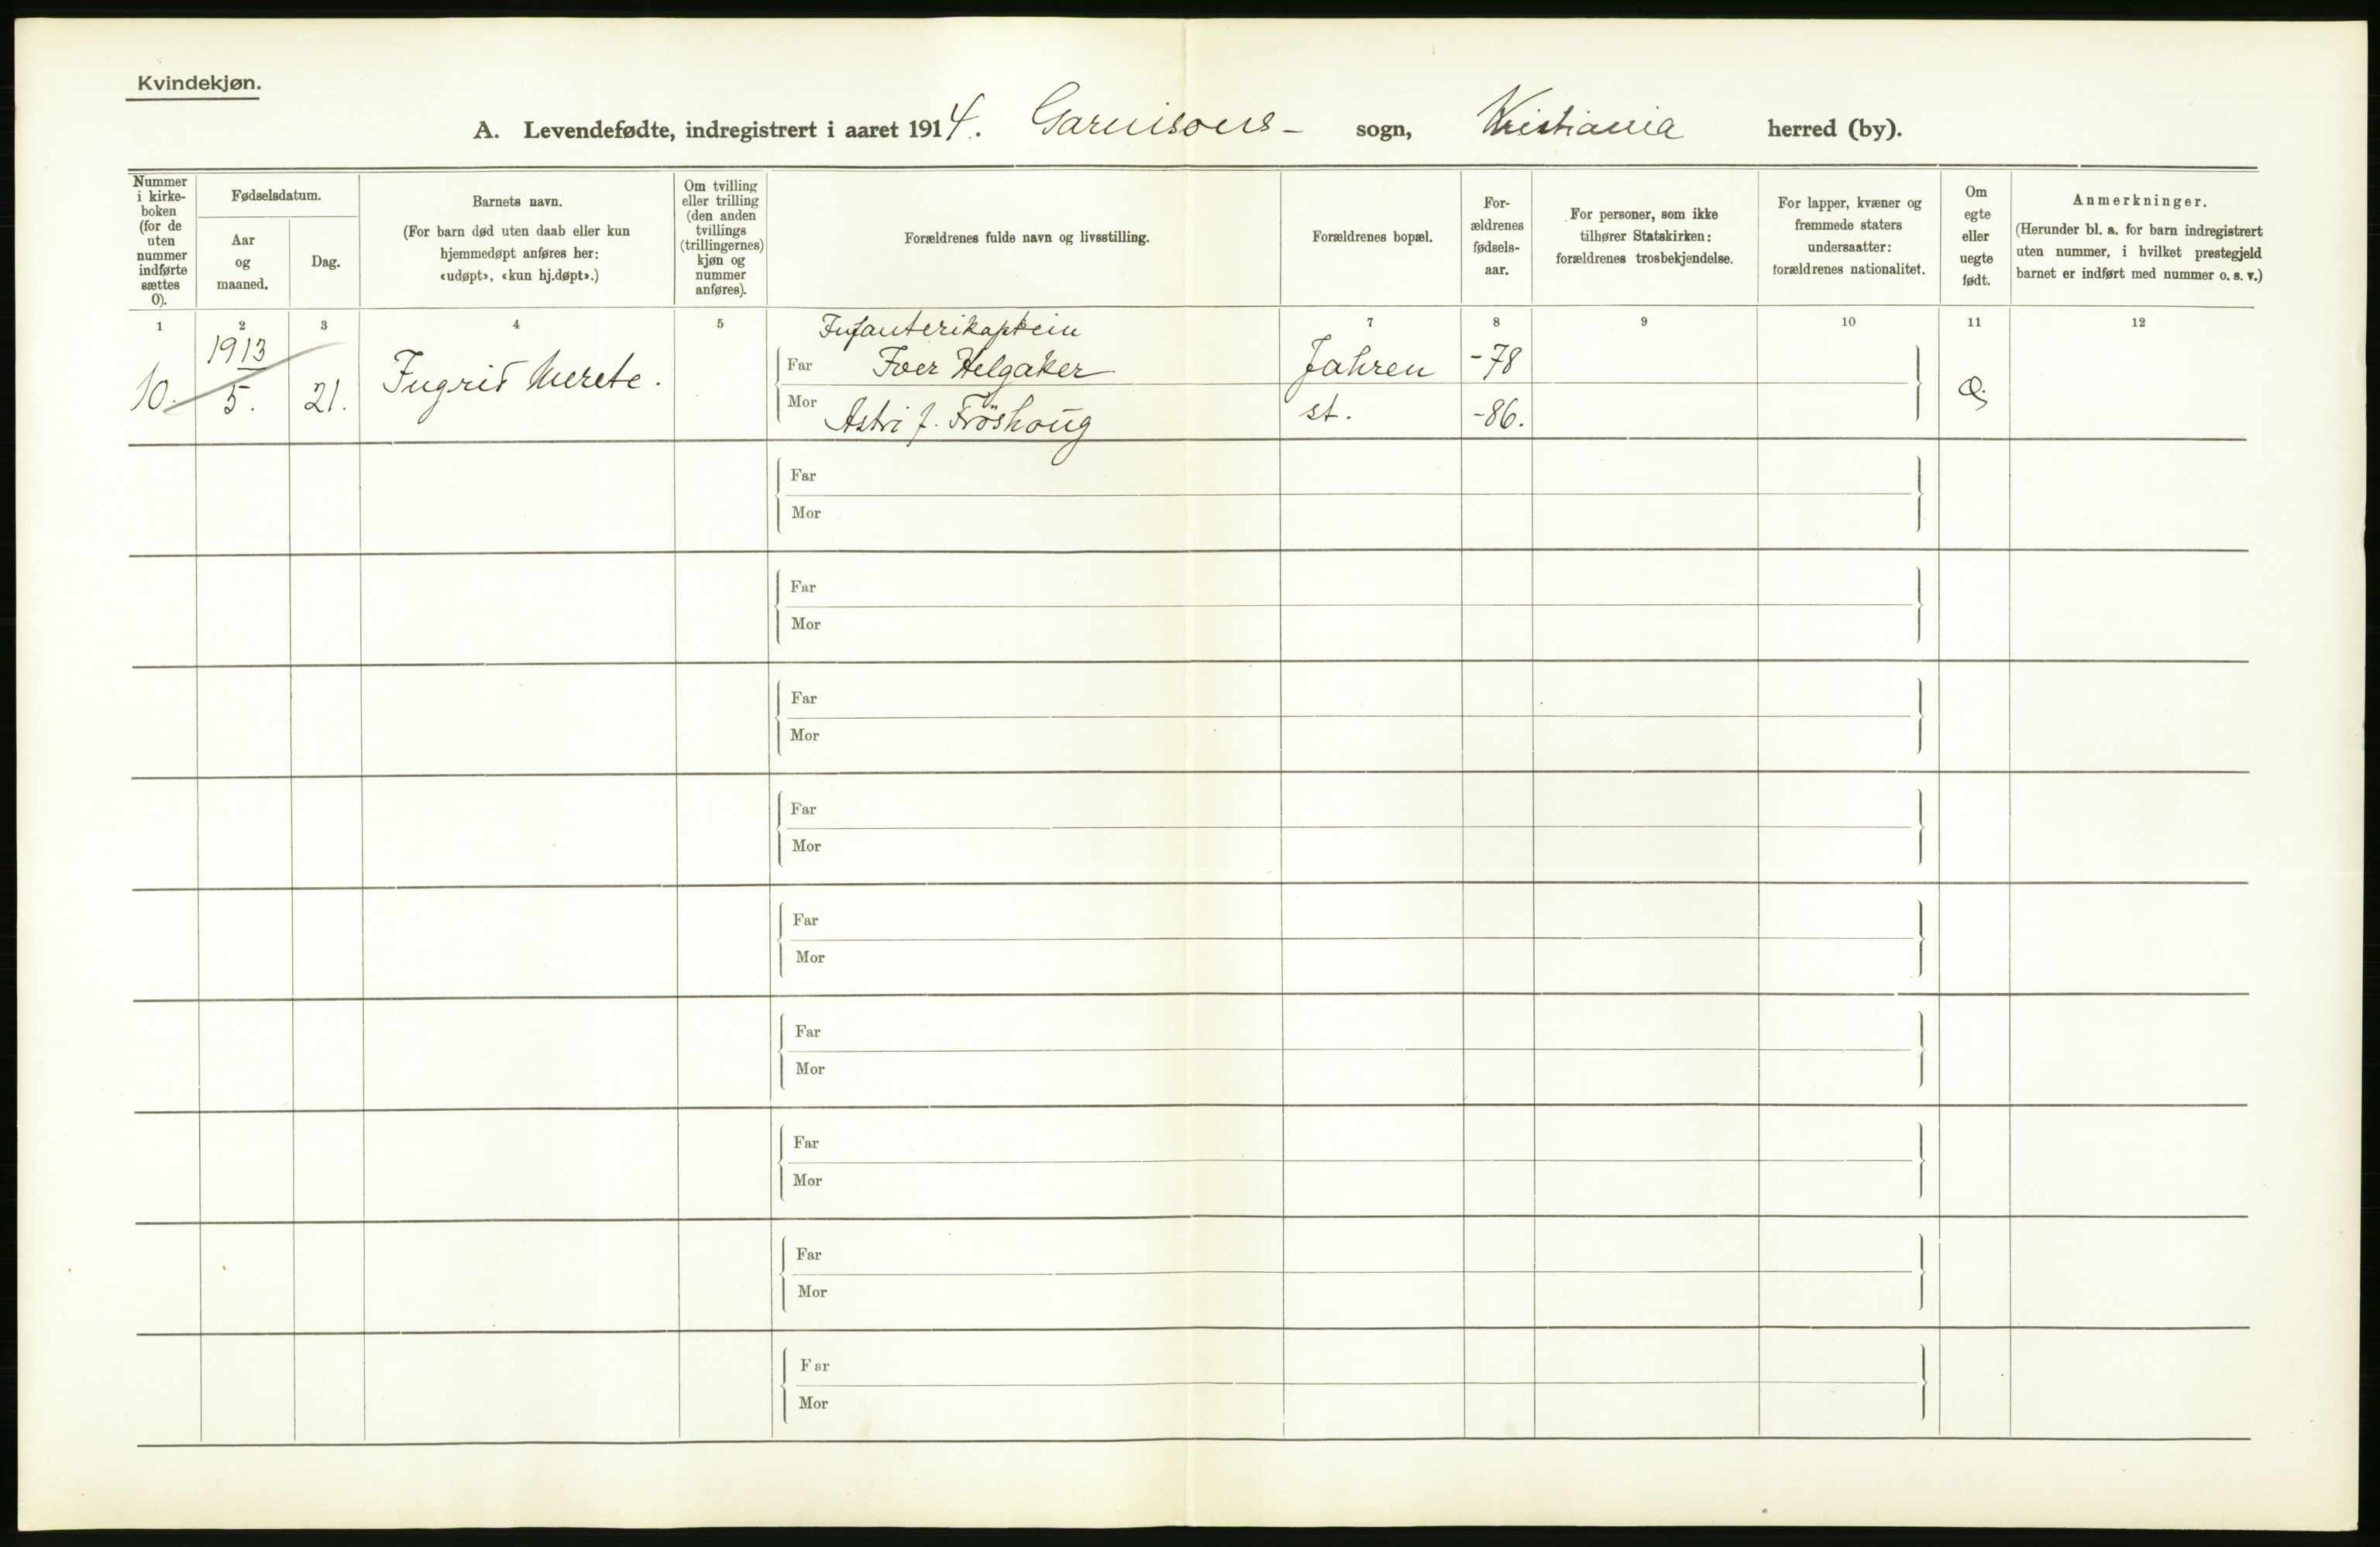 Kvindekjøn.
A. Levendefødte, indregistrert i aaret 1914. Garnisons- sogn, Kristiania herred (by).
Nummer i kirke-boken (for de uten nummer indførte sættes 0).
Fødselsdatum.
Aar og maaned.
Dag.
Barnets navn.
(For barn død uten daab eller kun hjemmedøpt anføres her: «udøpt», «kun hj.døpt».)
Om tvilling eller trilling (den anden tvillings (trillingernes) kjøn og nummer anføres).
Forældrenes fulde navn og livsstilling.
Forældrenes bopæl.
For-ældrenes fødsels-aar.
For personer, som ikke tilhører Statskirken: forældrenes trosbekjendelse.
For lapper, kvæner og fremmede staters undersaatter: forældrenes nationalitet.
Om egte eller uegte født.
Anmerkninger.
(Herunder bl. a. for barn indregistrert uten nummer, i hvilket prestegjeld barnet er indført med nummer o. s. v.)
1 2 3 4 5 7 8 9 10 11 12
1913
Infanterikaptein
Far Iver Helgaker Jahren -78
10. 5. 21. Ingrid Merete.
Mor Astri f. Fröshoug st. -86.
Far
Mor
Far
Mor
Far
Mor
Far
Mor
Far
Mor
Far
Mor
Far
Mor
Far
Mor
Far
Mor